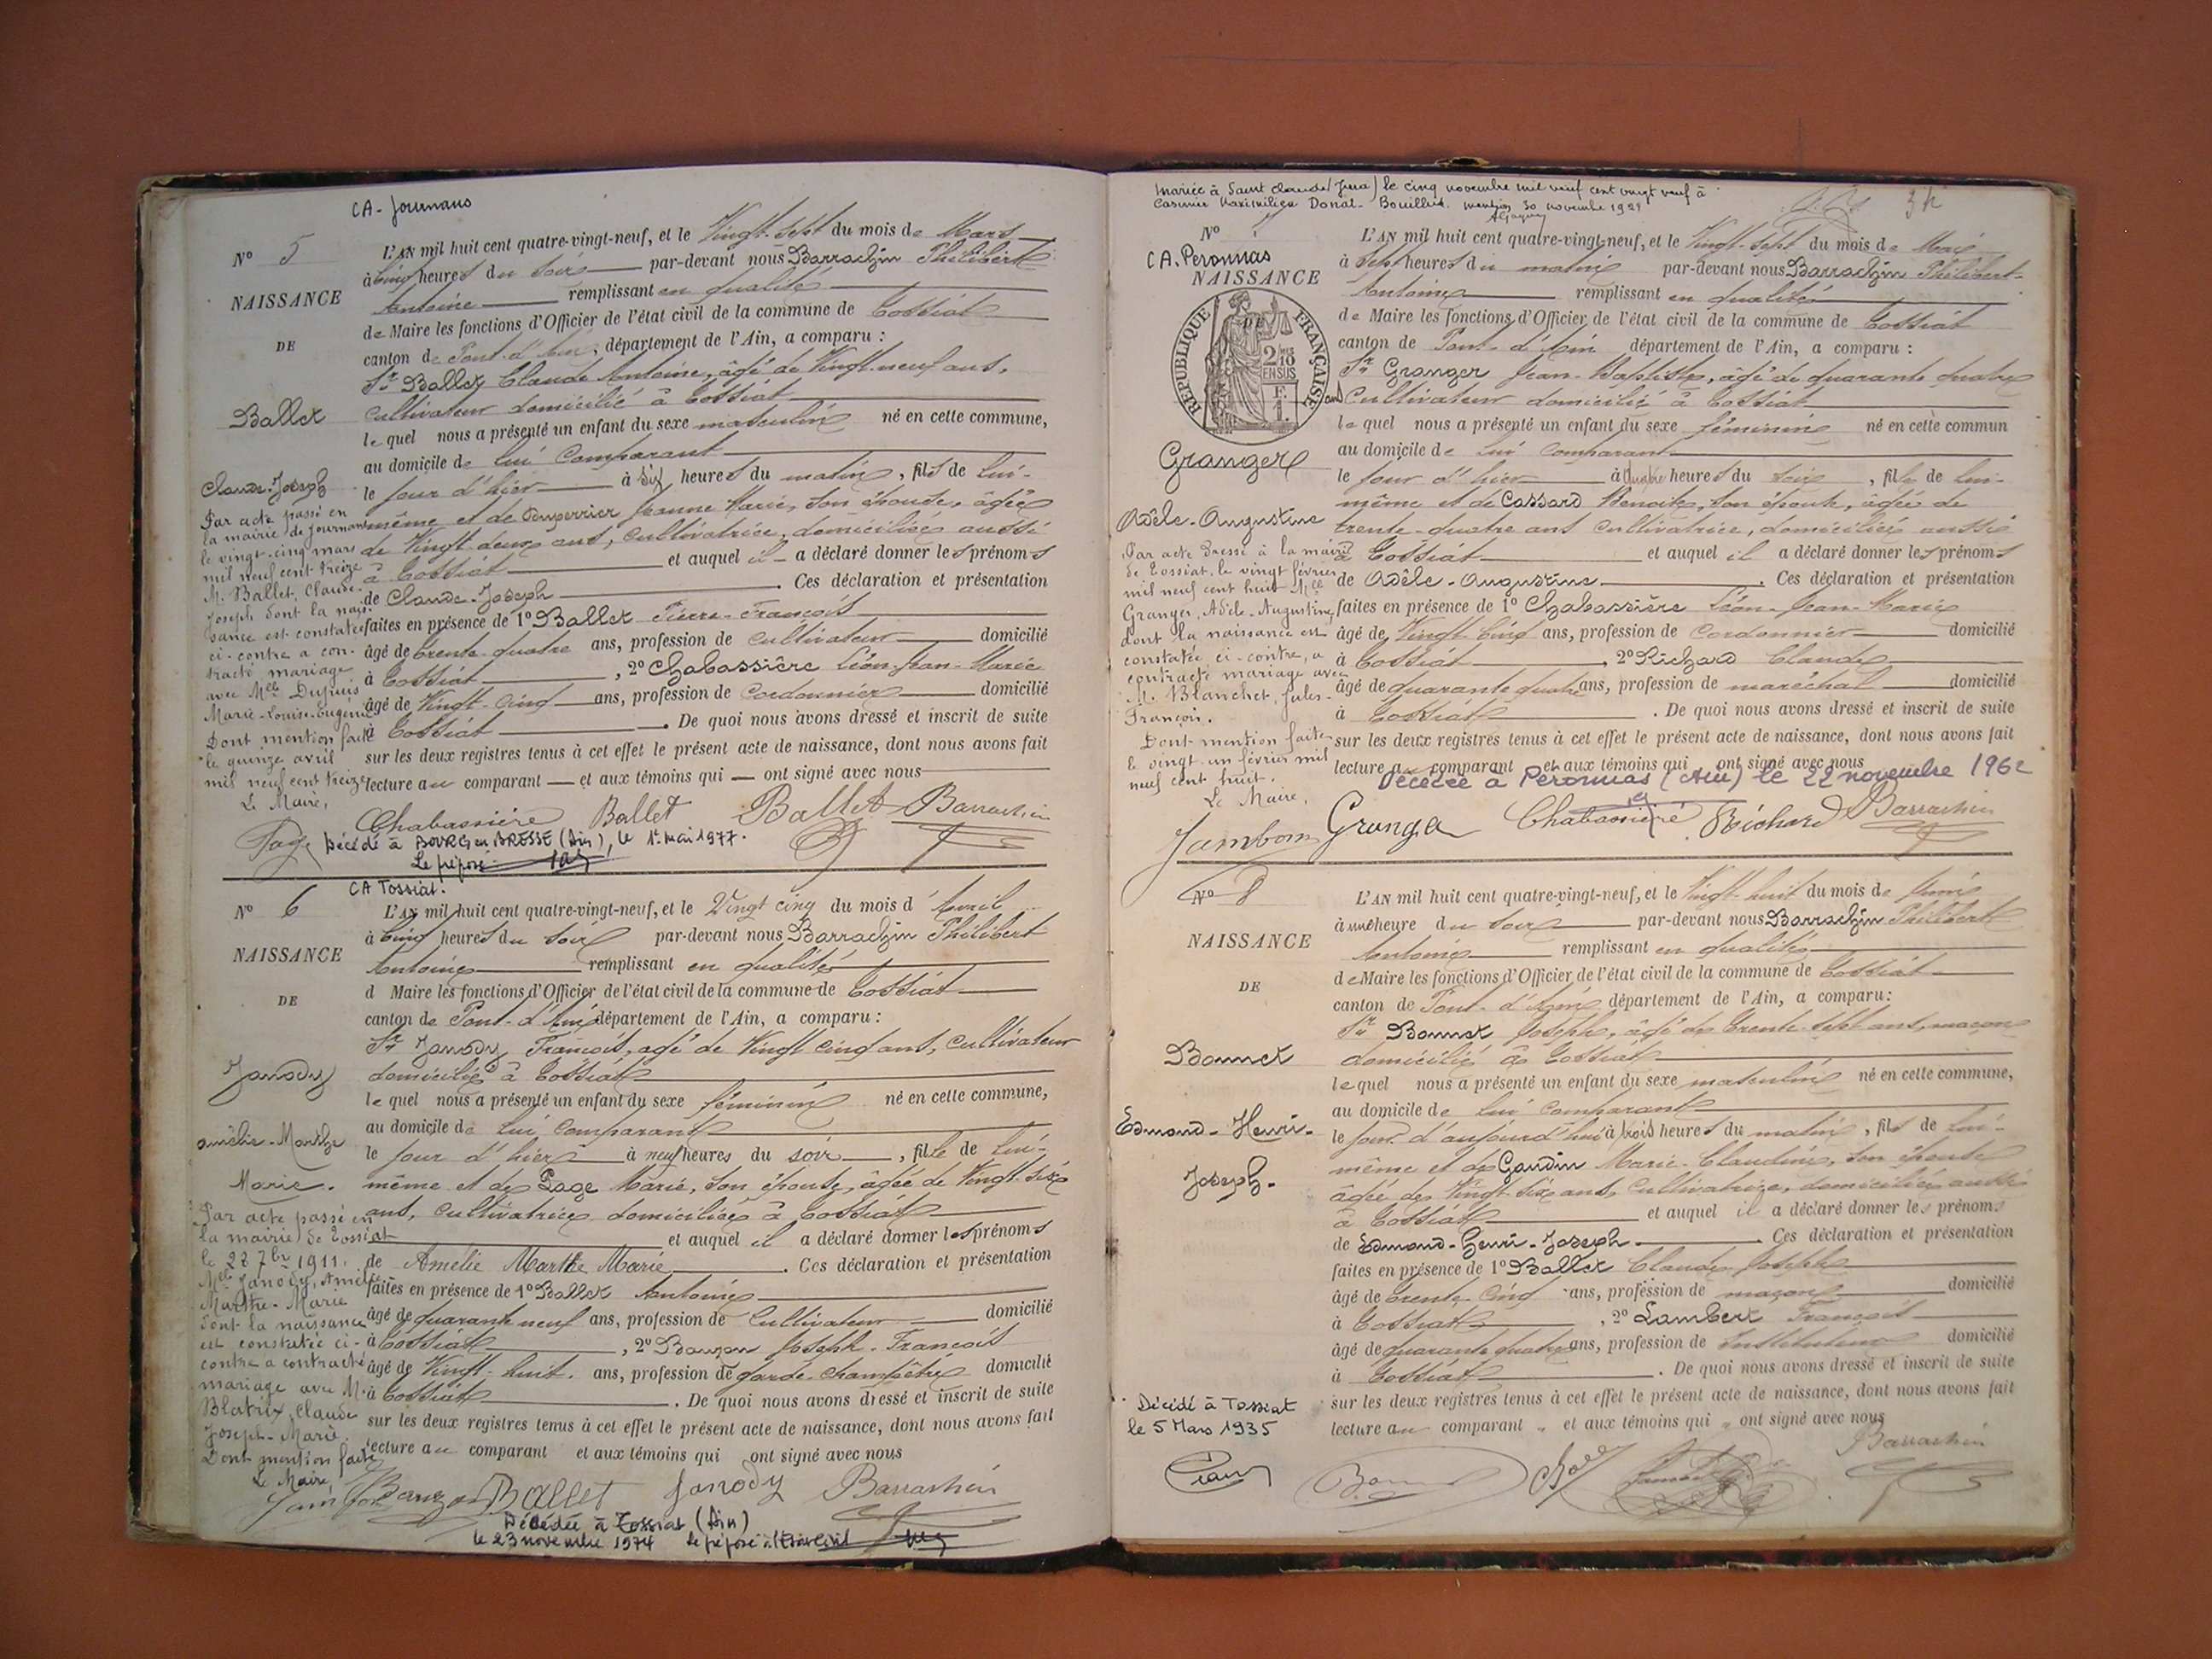 CA - Journans
N° 5
NAISSANCE
DE
Ballet
Claude-Joseph
Par acte passé en
la mairie de Journans
le vingt-cinq mars
mil neuf cent treize
M. Ballet, Claude-
Joseph dont la nais-
sance est constatée
ci-contre a con-
tracté mariage
avec Mlle Dupuis
Marie-Louise-Eugénie
Dont mention faite
le quinze avril
mil neuf cent treize
Le Maire,
L'AN mil huit cent quatre-vingt-neuf, et le Vingt-sept du mois de Mars
à Cinq heures du soir par-devant nous Barrachin Philibert
Antoine remplissant en qualité
de Maire les fonctions d'Officier de l'état civil de la commune de Tossiat
canton de Pont-d'Ain, département de l'Ain, a comparu :
Sr Ballet Claude Antoine, âgé de Vingt-neuf ans,
cultivateur domicilié à Tossiat
lequel nous a présenté un enfant du sexe masculin né en cette commune,
au domicile de lui comparant
le jour d'hier à six heures du matin, fils de lui-
même et de Duperrier Jeanne Marie, son épouse, âgée
de Vingt deux ans, cultivatrice, domiciliée aussi
à Tossiat et auquel il a déclaré donner les prénoms
de Claude-Joseph. Ces déclaration et présentation
faites en présence de 1° Ballet Pierre-François
âgé de trente-quatre ans, profession de cultivateur domicilié
à Tossiat, 2° Chabassière Léon-Jean-Marie
âgé de Vingt-cinq ans, profession de cordonnier domicilié
à Tossiat. De quoi nous avons dressé et inscrit de suite
sur les deux registres tenus à cet effet le présent acte de naissance, dont nous avons fait
lecture au comparant et aux témoins qui ont signé avec nous
Chabassière Ballet Ballet Barrachin
Page Décédé à BOURG en BRESSE (Ain), le 1er mai 1977.
Le préposé
CA Tossiat.
N° 6
NAISSANCE
DE
Janody
Amélie-Marthe
Marie.
Par acte passé en
la mairie de Tossiat
le 7bre 1911.
Mlle Janody, Amélie
Marthe-Marie
dont la naissance
est constatée ci-
contre a contracté
mariage avec M.
Blatrix, Claude
Joseph-Marie.
Dont mention faite
Le Maire,
L'AN mil huit cent quatre-vingt-neuf, et le Vingt cinq du mois d'Avril
à Cinq heures du soir par-devant nous Barrachin Philibert
Antoine remplissant en qualité
d Maire les fonctions d'Officier de l'état civil de la commune de Tossiat
canton de Pont-d'Ain département de l'Ain, a comparu :
Sr Janody François, agé de Vingt cinq ans, cultivateur
domicilié à Tossiat
lequel nous a présenté un enfant du sexe féminin né en cette commune,
au domicile de lui comparant
le jour d'hier à neuf heures du soir, fille de lui-
même et de Page Marie, son épouse, âgée de Vingt-six
ans, cultivatrice domiciliée à Tossiat
et auquel il a déclaré donner les prénoms
de Amélie Marthe Marie. Ces déclaration et présentation
faites en présence de 1° Ballet Antoine
âgé de quarante neuf ans, profession de cultivateur domicilié
à Tossiat, 2° Bauzon Joseph-François
âgé de Vingt-huit. ans, profession de garde-champêtre domicilié
à Tossiat. De quoi nous avons dressé et inscrit de suite
sur les deux registres tenus à cet effet le présent acte de naissance, dont nous avons fait
lecture au comparant et aux témoins qui ont signé avec nous
Jambon Bauzon Ballet Janody Barrachin
Décédée à Tossiat (Ain)
le 23 novembre 1974 Le préposé à l'Etat civil
mariée à Saint Claude (Jura) le cinq novembre mil neuf cent vingt neuf à
Casimir Maximilien Donat- Bouillud. mention 30 novembre 1929
34
N° 7
CA. Péronnas
NAISSANCE
DE
RÉPUBLIQUE FRANÇAISE
2/10 EN SUS
F. 1.
Granger
Adèle-Augustine
Par acte dressé à la mairie
de Tossiat, le vingt février
mil neuf cent huit Mlle
Granger, Adèle-Augustine,
dont la naissance est
constatée ci-contre, a
contracté mariage avec
M. Blanchet, Jules-
François.
Dont mention faite
le vingt-un février mil
neuf cent huit.
Le Maire,
L'AN mil huit cent quatre-vingt-neuf, et le Vingt-sept du mois de Mai
à Sept heures du matin par-devant nous Barrachin Philibert-
Antoine remplissant en qualité
de Maire les fonctions d'Officier de l'état civil de la commune de Tossiat
canton de Pont-d'Ain département de l'Ain, a comparu :
Sr Granger Jean-Baptiste, âgé de quarante quatre
ans cultivateur domicilié à Tossiat
lequel nous a présenté un enfant du sexe féminin né en cette commun
au domicile de lui comparant
le jour d'hier à quatre heures du soir, fille de lui-
même et de Cassard Benoite, son épouse, âgée de
trente-quatre ans cultivatrice, domiciliée aussi
à Tossiat et auquel il a déclaré donner les prénoms
de Adèle-Augustine. Ces déclaration et présentation
faites en présence de 1° Chabassière Léon-Jean-Marie
âgé de Vingt Cinq ans, profession de Cordonnier domicilié
à Tossiat, 2° Richard Claude
âgé de quarante quatre ans, profession de maréchal domicilié
à Tossiat. De quoi nous avons dressé et inscrit de suite
sur les deux registres tenus à cet effet le présent acte de naissance, dont nous avons fait
lecture au comparant et aux témoins qui ont signé avec nous
Décédée à Péronnas (Ain) le 22 novembre 1962
Jambon Granger Chabassière Richard Barrachin
N° 8
NAISSANCE
DE
Bonnet
Edmond-Henri-
Joseph-
Décédé à Tossiat
le 5 Mars 1935
L'AN mil huit cent quatre-vingt-neuf, et le Vingt-huit du mois de Juin
à une heure du soir par-devant nous Barrachin Philibert
Antoine remplissant en qualité
de Maire les fonctions d'Officier de l'état civil de la commune de Tossiat
canton de Pont-d'Ain département de l'Ain, a comparu:
Sr Bonnet Joseph, âgé de trente-sept ans, maçon
domicilié à Tossiat
lequel nous a présenté un enfant du sexe masculin né en cette commune,
au domicile de lui comparant
le jour d'aujourd'hui à trois heures du matin, fils de lui-
même et de Gaudin Marie-Claudine, son épouse
âgée de Vingt-six ans, cultivatrice, domiciliée aussi
à Tossiat et auquel il a déclaré donner les prénoms
de Edmond-Henri-Joseph. Ces déclaration et présentation
faites en présence de 1° Ballet Claude Joseph
âgé de trente-cinq ans, profession de maçon domicilié
à Tossiat, 2° Lambert François
âgé de quarante quatre ans, profession de Instituteur domicilié
à Tossiat. De quoi nous avons dressé et inscrit de suite
sur les deux registres tenus à cet effet le présent acte de naissance, dont nous avons fait
lecture au comparant et aux témoins qui ont signé avec nous
Barrachin